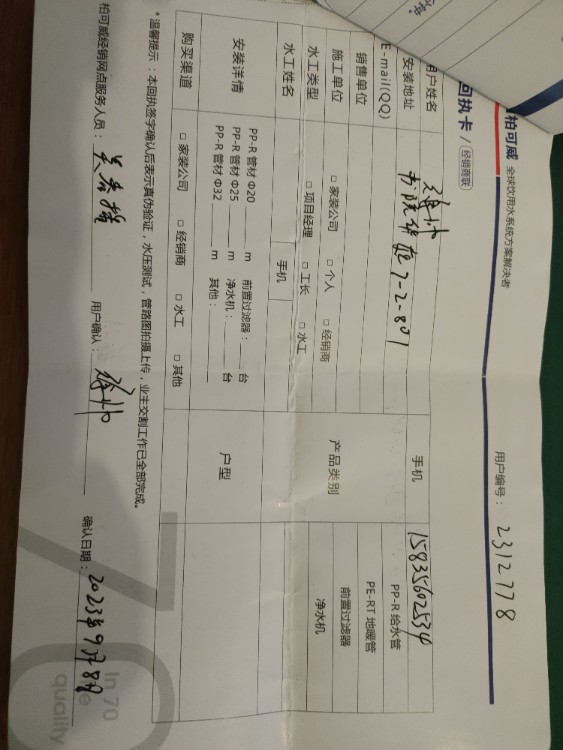 柏可威 全球饮用水系统方案解决者
回执卡 / 经销商联
用户编号： 2312778
用户姓名
手机 15835602534
安装地址 书院华庭7-2-801
E-mail(QQ)
销售单位
施工单位 □ 家装公司 □ 个人 □ 经销商
水工类型 □ 项目经理 □ 工长 □ 水工
水工姓名 手机
产品类别
PP-R 给水管
PE-RT 地暖管
前置过滤器
净水机
安装详情
PP-R 管材 Φ20 m 前置过滤器： 台
PP-R 管材 Φ25 m 净水机： 台
PP-R 管材 Φ32 m 其他：
户型
购买渠道 □ 家装公司 □ 经销商 □ 水工 □ 其他
*温馨提示：本回执签字确认后表示真伪验证，水压测试，管路图拍摄上传，业主交割工作已全部完成。
柏可威经销网点服务人员： 用户确认： 确认日期： 2023年9月8日
In 70
quality